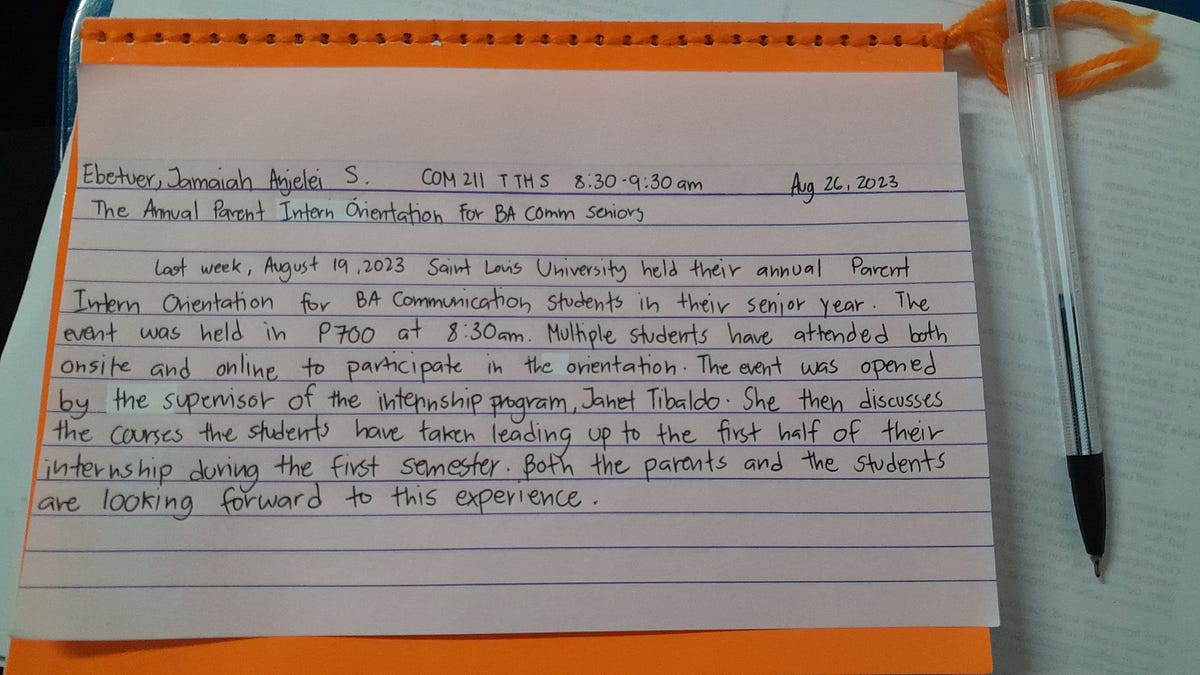 Ebetuer, Jamaiah Anjelei S. COM 211 T TH S 8:30-9:30 am Aug 26, 2023
The Annual Parent Intern Orientation For BA Comm Seniors
Last week, August 19, 2023 Saint Louis University held their annual Parent
Intern Orientation for BA Communication students in their senior year. The
event was held in P700 at 8:30am. Multiple students have attended both
onsite and online to participate in the orientation. The event was opened
by the supervisor of the internship program, Janet Tibaldo. She then discusses
the courses the students have taken leading up to the first half of their
internship during the first semester. Both the parents and the students
are looking forward to this experience.